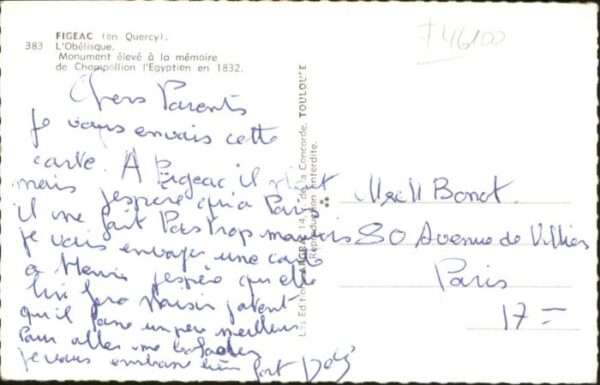 FIGEAC (en Quercy).
383 L'Obélisque.
Monument élevé à la mémoire
de Champollion l'Egyptien en 1832.
F46/00
Chers Parents
je vous envais cette
carte. A Figeac il
mais j'espère qu'à Paris
il ne fait Pas trop mauvais
je vais envoyer une carte
a j'espère qu'elle
lui fera Plaisir
qu'il fasse un peu meilleur
Pour aller me
je vous embrasse bien fort
Les Editions 14, r. de la Concorde, TOULOUSE
Reproduction interdite.
Bonot
80 Avenue de Villiers
Paris
17